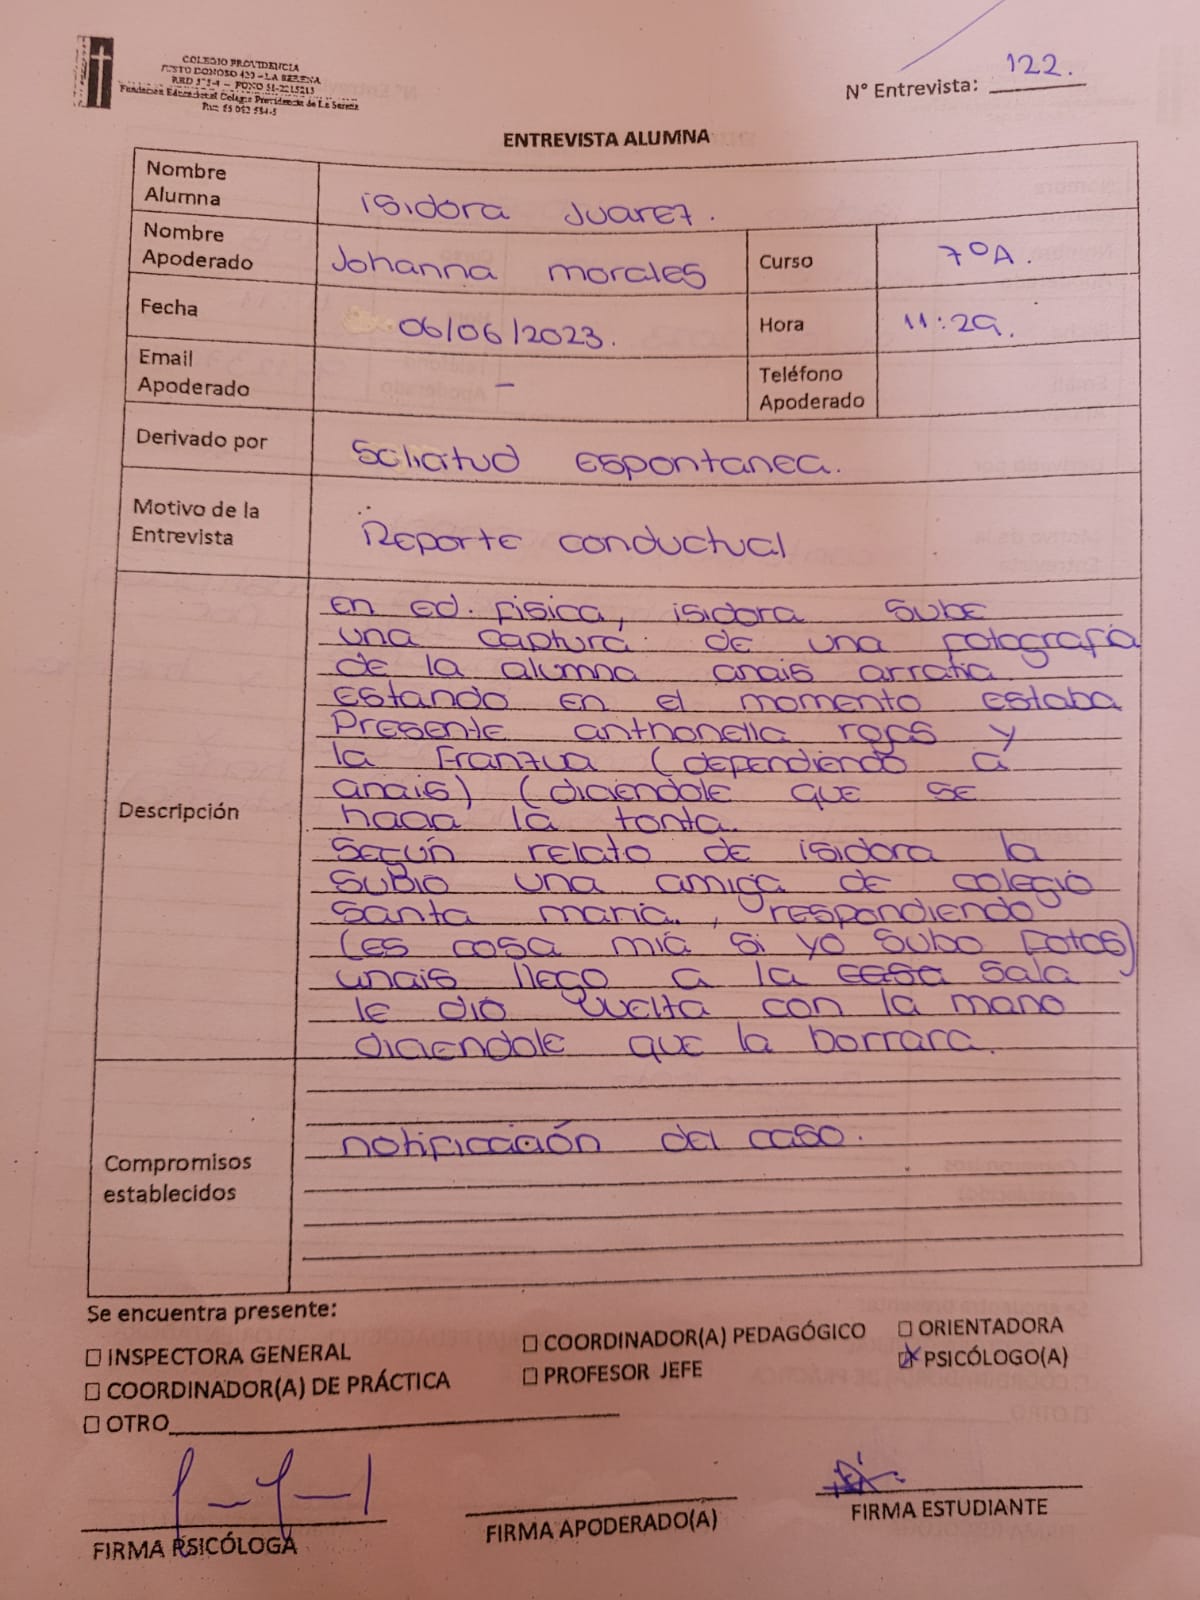 COLEGIO PROVIDENCIA
JUSTO DONOSO 420 - LA SERENA
Fundación Educacional Colegio Providencia de La Serena
N° Entrevista: 122.
ENTREVISTA ALUMNA
Nombre Alumna isidora Juarez.
Nombre Apoderado Johanna morales Curso 7°A.
Fecha 06/06/2023. Hora 11:29.
Email Apoderado - Teléfono Apoderado
Derivado por Solicitud espontanea.
Motivo de la Entrevista Reporte conductual
Descripción
en ed. fisica, isidora sube
una captura de una fotografía
de la alumna anais arratia
estando en el momento estaba
presente anthonella rojas y
la Franzua (dependiendo a
anais) (diciendole que se
hacia la tonta.
Según relato de isidora la
subio una amiga de colegio
Santa maria, respondiendo
(es cosa mia si yo subo fotos)
anais llego a la casa sala
le dio vuelta con la mano
diciendole que la borrara.
Compromisos establecidos
notificación del caso.
Se encuentra presente:
☐ INSPECTORA GENERAL ☐ COORDINADOR(A) PEDAGÓGICO ☐ ORIENTADORA
☐ COORDINADOR(A) DE PRÁCTICA ☐ PROFESOR JEFE ☒ PSICÓLOGO(A)
☐ OTRO
FIRMA PSICÓLOGA FIRMA APODERADO(A) FIRMA ESTUDIANTE